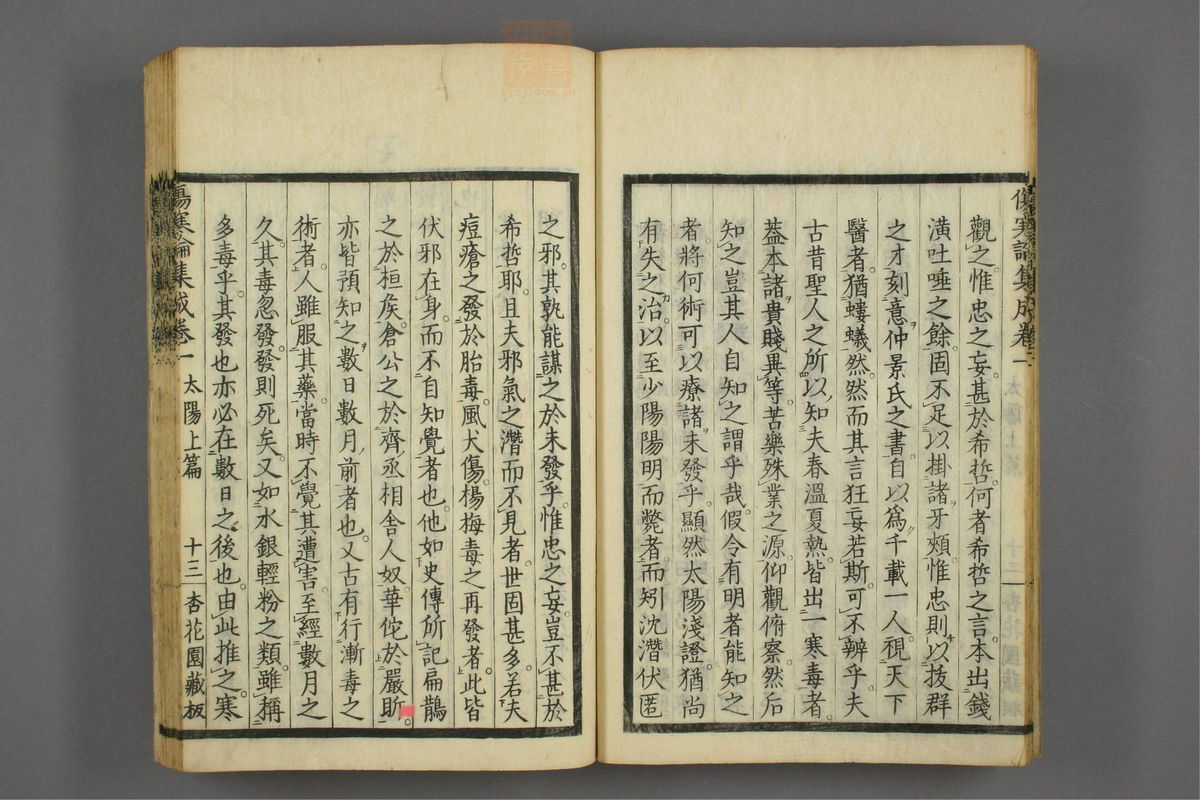 傷寒論集成卷一
觀之惟忠之妄甚於希哲何者希哲之言本出錢
潢吐唾之餘固不足以掛諸牙頰惟忠則以拔群
之才刻意仲景氏之書自以爲千載一人視天下
醫者猶螻蟻然然而其言狂妄若斯可不辨乎夫
古昔聖人之所以知夫春溫夏熱皆出一寒毒者
蓋本諸貴賤異等苦樂殊業之源仰觀俯察然后
知之豈其人自知之謂乎哉假令有明者能知之
者將何術可以療諸未發乎顯然太陽淺證猶尚
有失之治以至少陽陽明而斃者而矧沈潛伏匿
之邪其孰能謀之於未發乎惟忠之妄豈不甚於
希哲耶且夫邪氣之潛而不見者世固甚多若夫
痘瘡之發於胎毒風犬傷楊梅毒之再發者此皆
伏邪在身而不自知覺者也他如史傳所記扁鵲
之於桓侯倉公之於齊丞相舍人奴華佗於嚴昕
亦皆預知之數日數月前者也又古有行漸毒之
術者人雖服其藥當時不覺其遭害至經數月之
久其毒忽發發則死矣又如水銀輕粉之類雖稱
多毒乎其發也亦必在數日之後也由此推之寒
傷寒論集成卷一 太陽上篇 十三 杏花園藏板